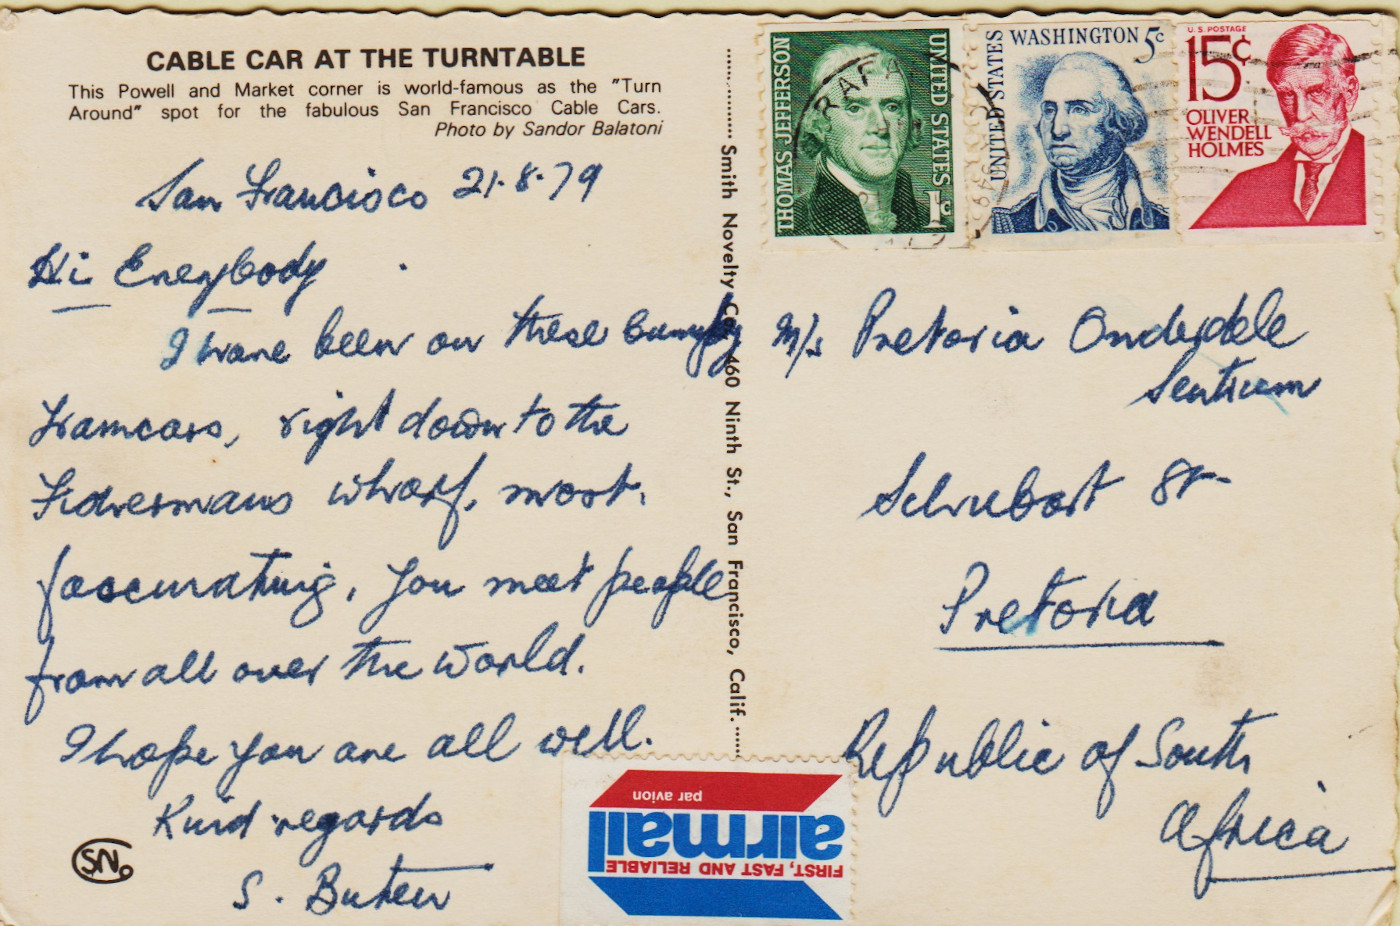 CABLE CAR AT THE TURNTABLE
This Powell and Market corner is world-famous as the "Turn
Around" spot for the fabulous San Francisco Cable Cars.
Photo by Sandor Balatoni
San Francisco 21.8.79
Hi Everybody
I have been on these bumpy
Tramcars, right down to the
Fishermans wharf, most.
fascinating, You meet people
from all over the World.
I hope you are all well.
Kind regards
S.
SN.
Smith Novelty Co., 460 Ninth St., San Francisco, Calif.
THOMAS JEFFERSON
UNITED STATES
1c
UNITED STATES
WASHINGTON 5c
U.S. POSTAGE
15¢
OLIVER
WENDELL
HOLMES
M/s Pretoria Onderdele
Sentrum
Schubart St
Pretoria
Republic of South
Africa
par avion
airmail
FIRST, FAST AND RELIABLE